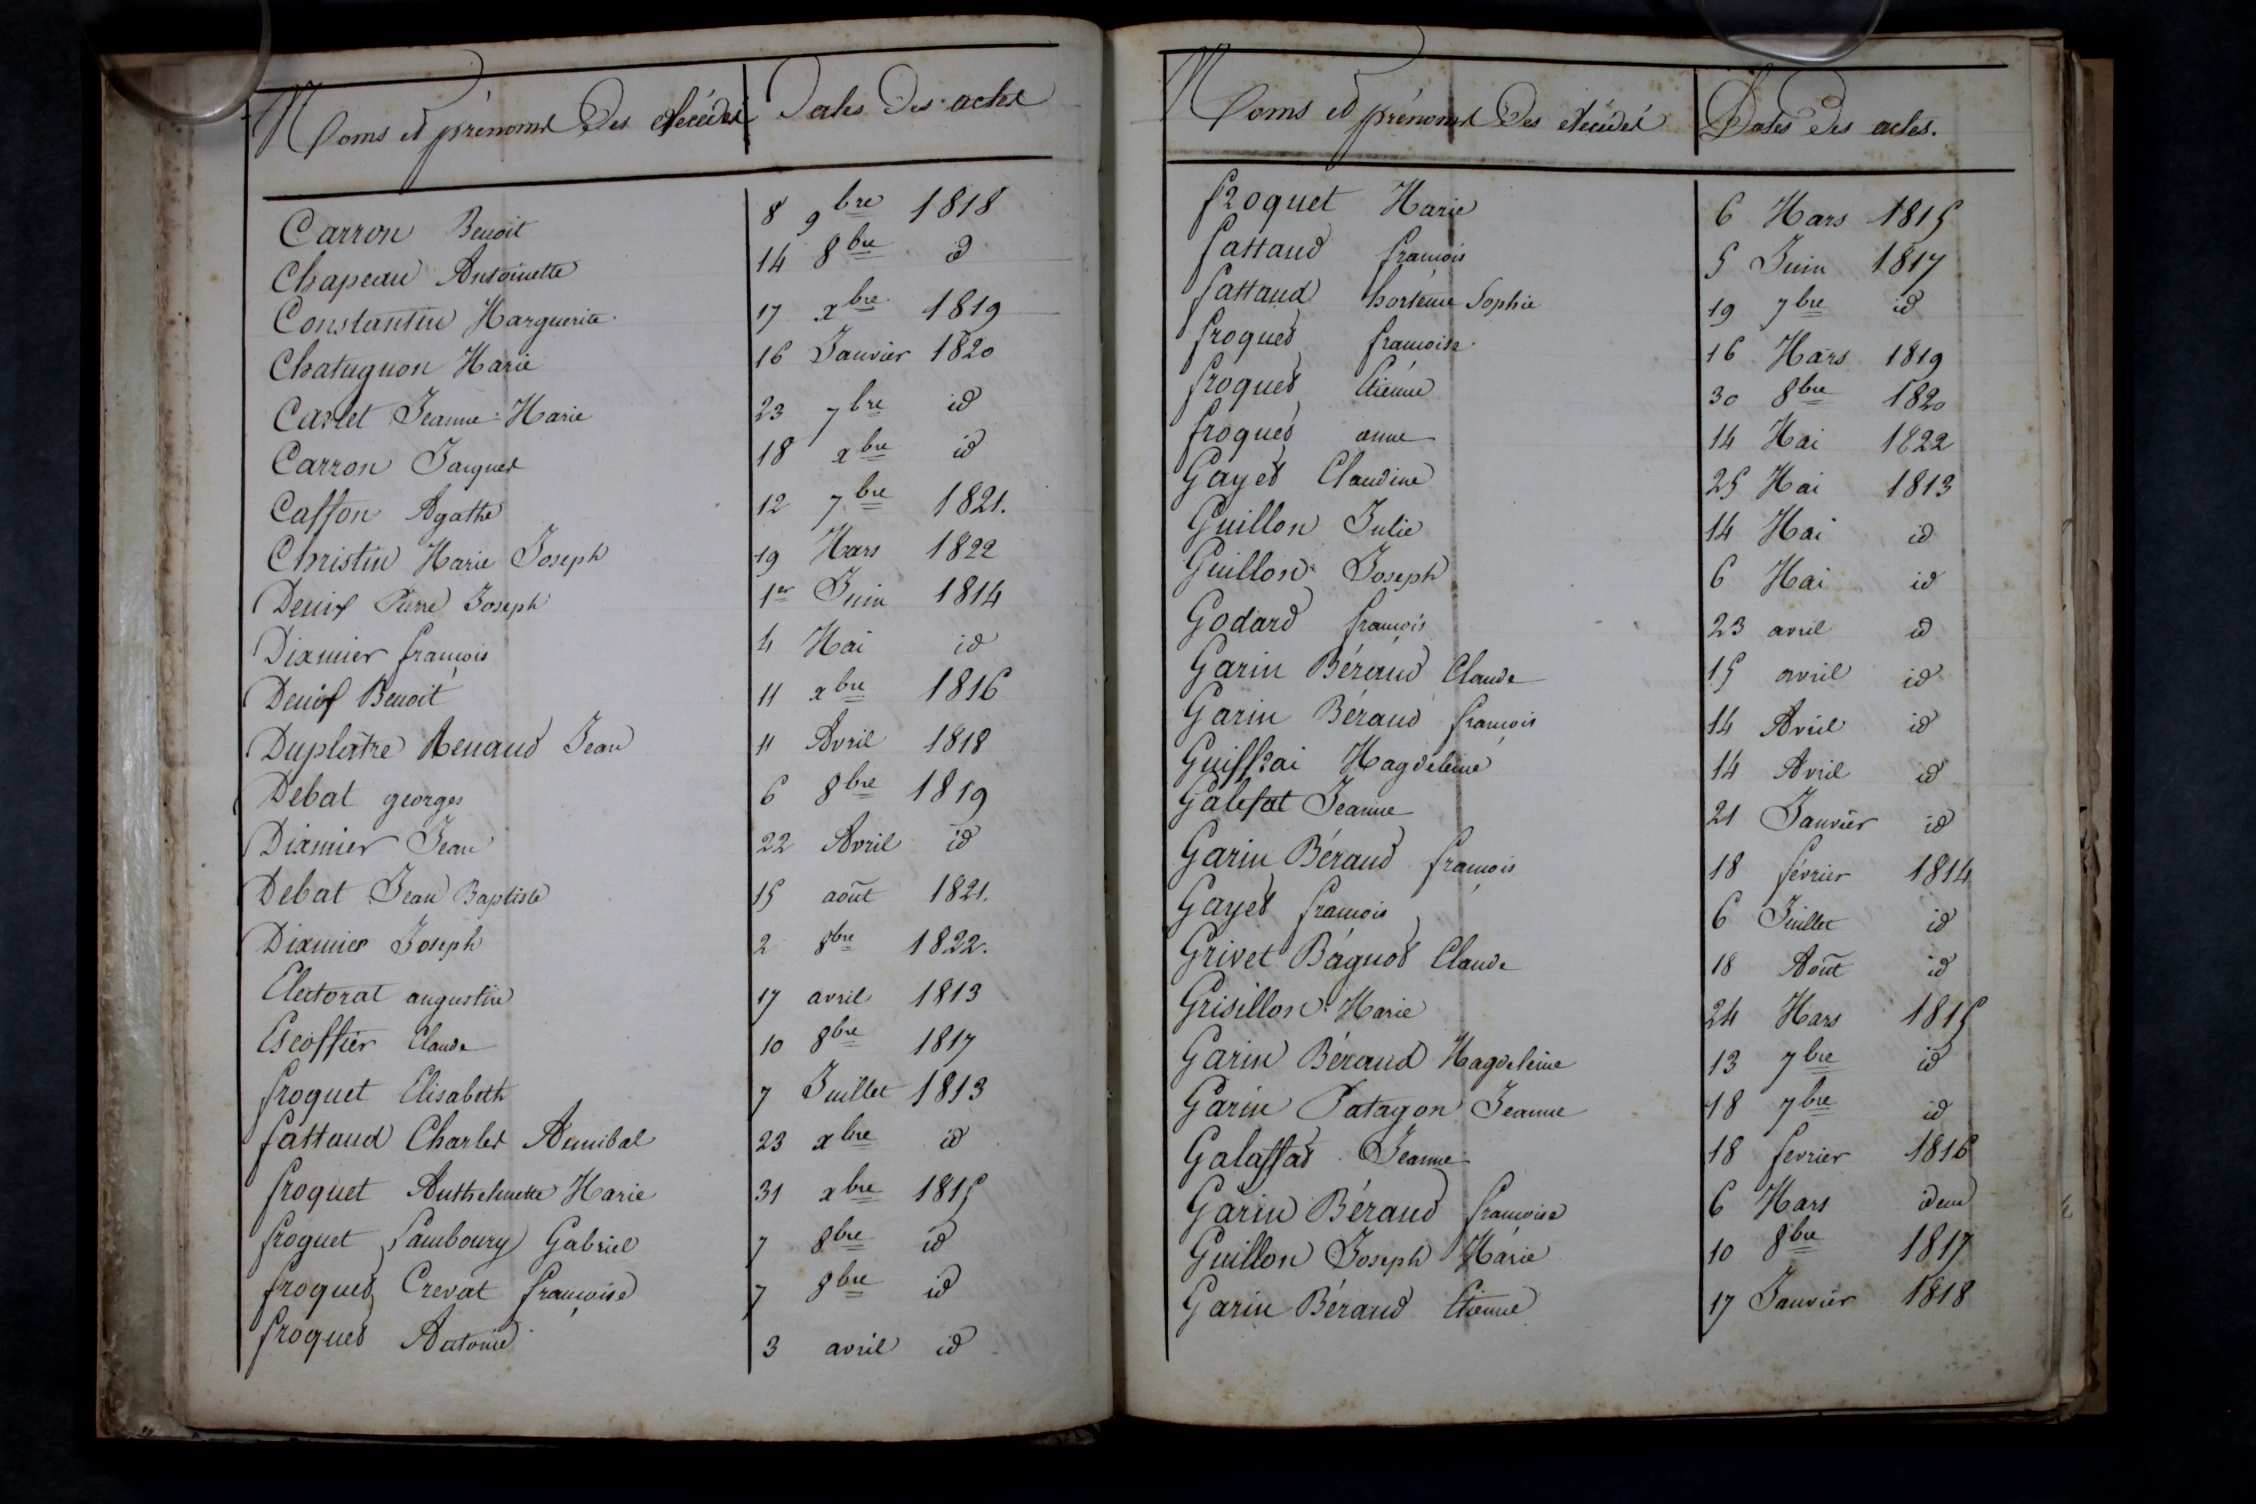 Noms et prénoms des décédés Dates des actes
Carron Benoit 8 9bre 1818
Chapeau Antoinette 14 8bre id
Constantin Marguerite 17 xbre 1819
Chatugnon Marie 16 Janvier 1820
Carlet Jeanne-Marie 23 7bre id
Carron Jacques 18 xbre id
Caffon Agathe 12 7bre 1821.
Christin Marie Joseph 19 Mars 1822
Denis Pierre Joseph 1er Juin 1814
Dixmier françois 4 Mai id
Denis Benoit 11 xbre 1816
Duplatre Renaud Jean 11 Avril 1818
Debat georges 6 8bre 1819
Dixmier Jean 22 Avril id
Debat Jean Baptiste 15 août 1821.
Dixmier Joseph 2 8bre 1822.
Electorat augustin 17 avril 1813
Escoffier Claude 10 8bre 1817
froquet Elisabeth 7 Juillet 1813
fattaud Charles Annibal 23 xbre id
froquet Anthelmette Marie 31 xbre 1815
froquet Pambourg Gabriel 7 8bre id
froquet Crevat françoise 7 8bre id
froquet Antoine 3 avril id
Noms et prénoms des décédés Dates des actes.
froquet Marie 6 Mars 1815
fattaud françois 5 Juin 1817
fattaud hortense Sophie 19 7bre id
froquet françoise 16 Mars 1819
froquet Etienne 30 8bre 1820
froquet anne 14 Mai 1822
Gayet Claudine 25 Mai 1813
Guillon Julie 14 Mai id
Guillon Joseph 6 Mai id
Godard françois 23 avril id
Garin Béraud Claude 15 avril id
Garin Béraud françois 14 Avril id
Guiffrai Magdeleine 14 Avril id
Galefat Jeanne 21 Janvier id
Garin Béraud françois 18 février 1814
Gayet françois 6 Juillet id
Grivet Bagnot Claude 18 Août id
Grisillon Marie 24 Mars 1815
Garin Béraud Magdeleine 13 7bre id
Garin Patagon Jeanne 18 7bre id
Galaffat Jeanne 18 fevrier 1816
Garin Béraud françoise 6 Mars idem
Guillon Joseph Marie 10 8bre 1817
Garin Béraud Etienne 17 Janvier 1818